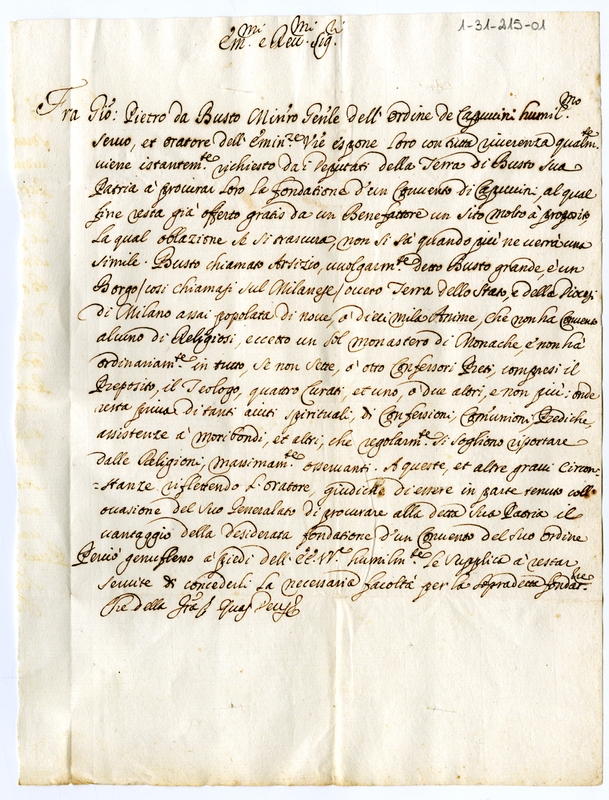 1-31-215-01
Em.mi e Reu.mi Sig.ri
Fra Gio: Pietro da Busto Min'ro Gen'le dell'ordine de Capuccini humil.mo
seruo, et oratore dell'Emin.ze V're espone loro con tutta riuerenza qualm.te
uiene istantem.te richiesto da i Deputati della Terra di Busto sua
Patria à procurar loro la fondatione d'un Conuento di Capuccini, al qual
fine resta già offerto gratis da un Benefattore un sito molto à proposito,
la qual oblazione se si trascura, non si sà quando più ne uerrà una
simile. Busto chiamato Arsizio, uuolgarm.te detto Busto grande, è un
Borgo/cosi chiamasi sul Milanese/ouero Terra dello Stato, e della Diocesi
di Milano assai popolata di noue, ò dieci mila Anime, che non ha Conuento
alcuno di Religiosi, eccetto un sol monastero di Monache, e non hà
ordinariam.te in tutto, se non sette, ò otto Confessori Preti, compresi il
Preposito, il Teologo, quattro Curati, et uno, ò due altri, e non più; onde
resta priua di tanti aiuti spirituali, di Confessioni, Com'unioni, Prediche,
assistenze à moribondi, et altri, che regolarm.te si sogliono riportare
dalle Religioni, massimam.te osseruanti. A queste, et altre graui Circon-
=stanze riflettendo l'oratore, giudica di essere in parte tenuto coll'
occasione del suo Generalato di procurare alla detta sua Patria il
uantaggio della desiderata fondatione d'un Conuento del suo ordine
Perciò genuflesso à piedi dell'EE. VV.re humilm.te le supplica à restar
seruite di concederli la necessaria facoltà per la sopradetta fondat.ne
Che della gra. quas Deus